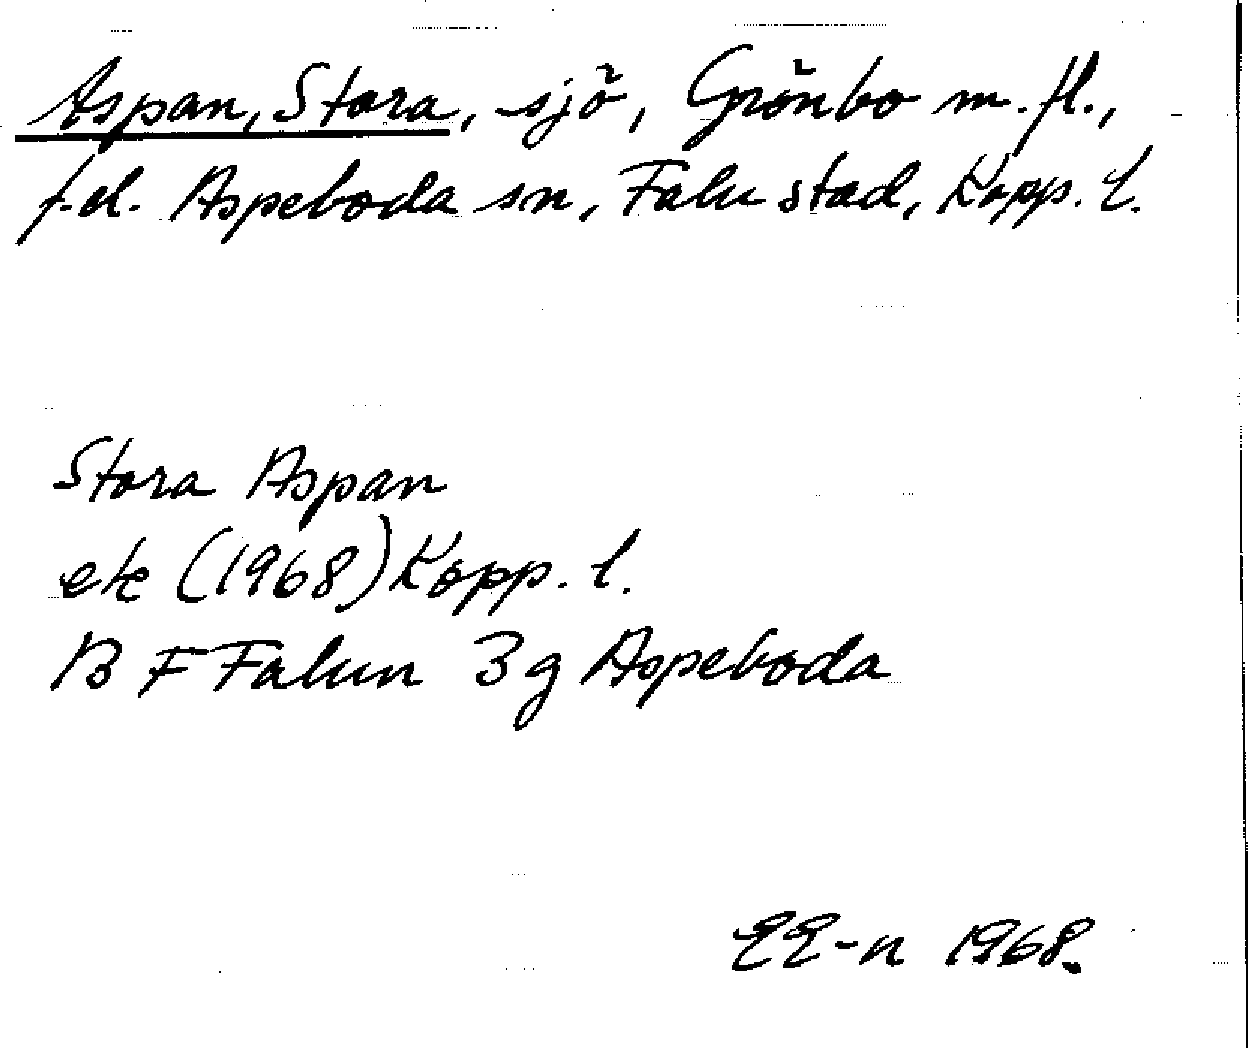 Aspan, Stora, sjö, Grönbo m.fl.,
f.d. Aspeboda sn, Falu stad, Kopp. l.
Stora Aspan
ek (1968) Kopp. l.
B F Falun 3g Aspeboda
EE-n 1968.